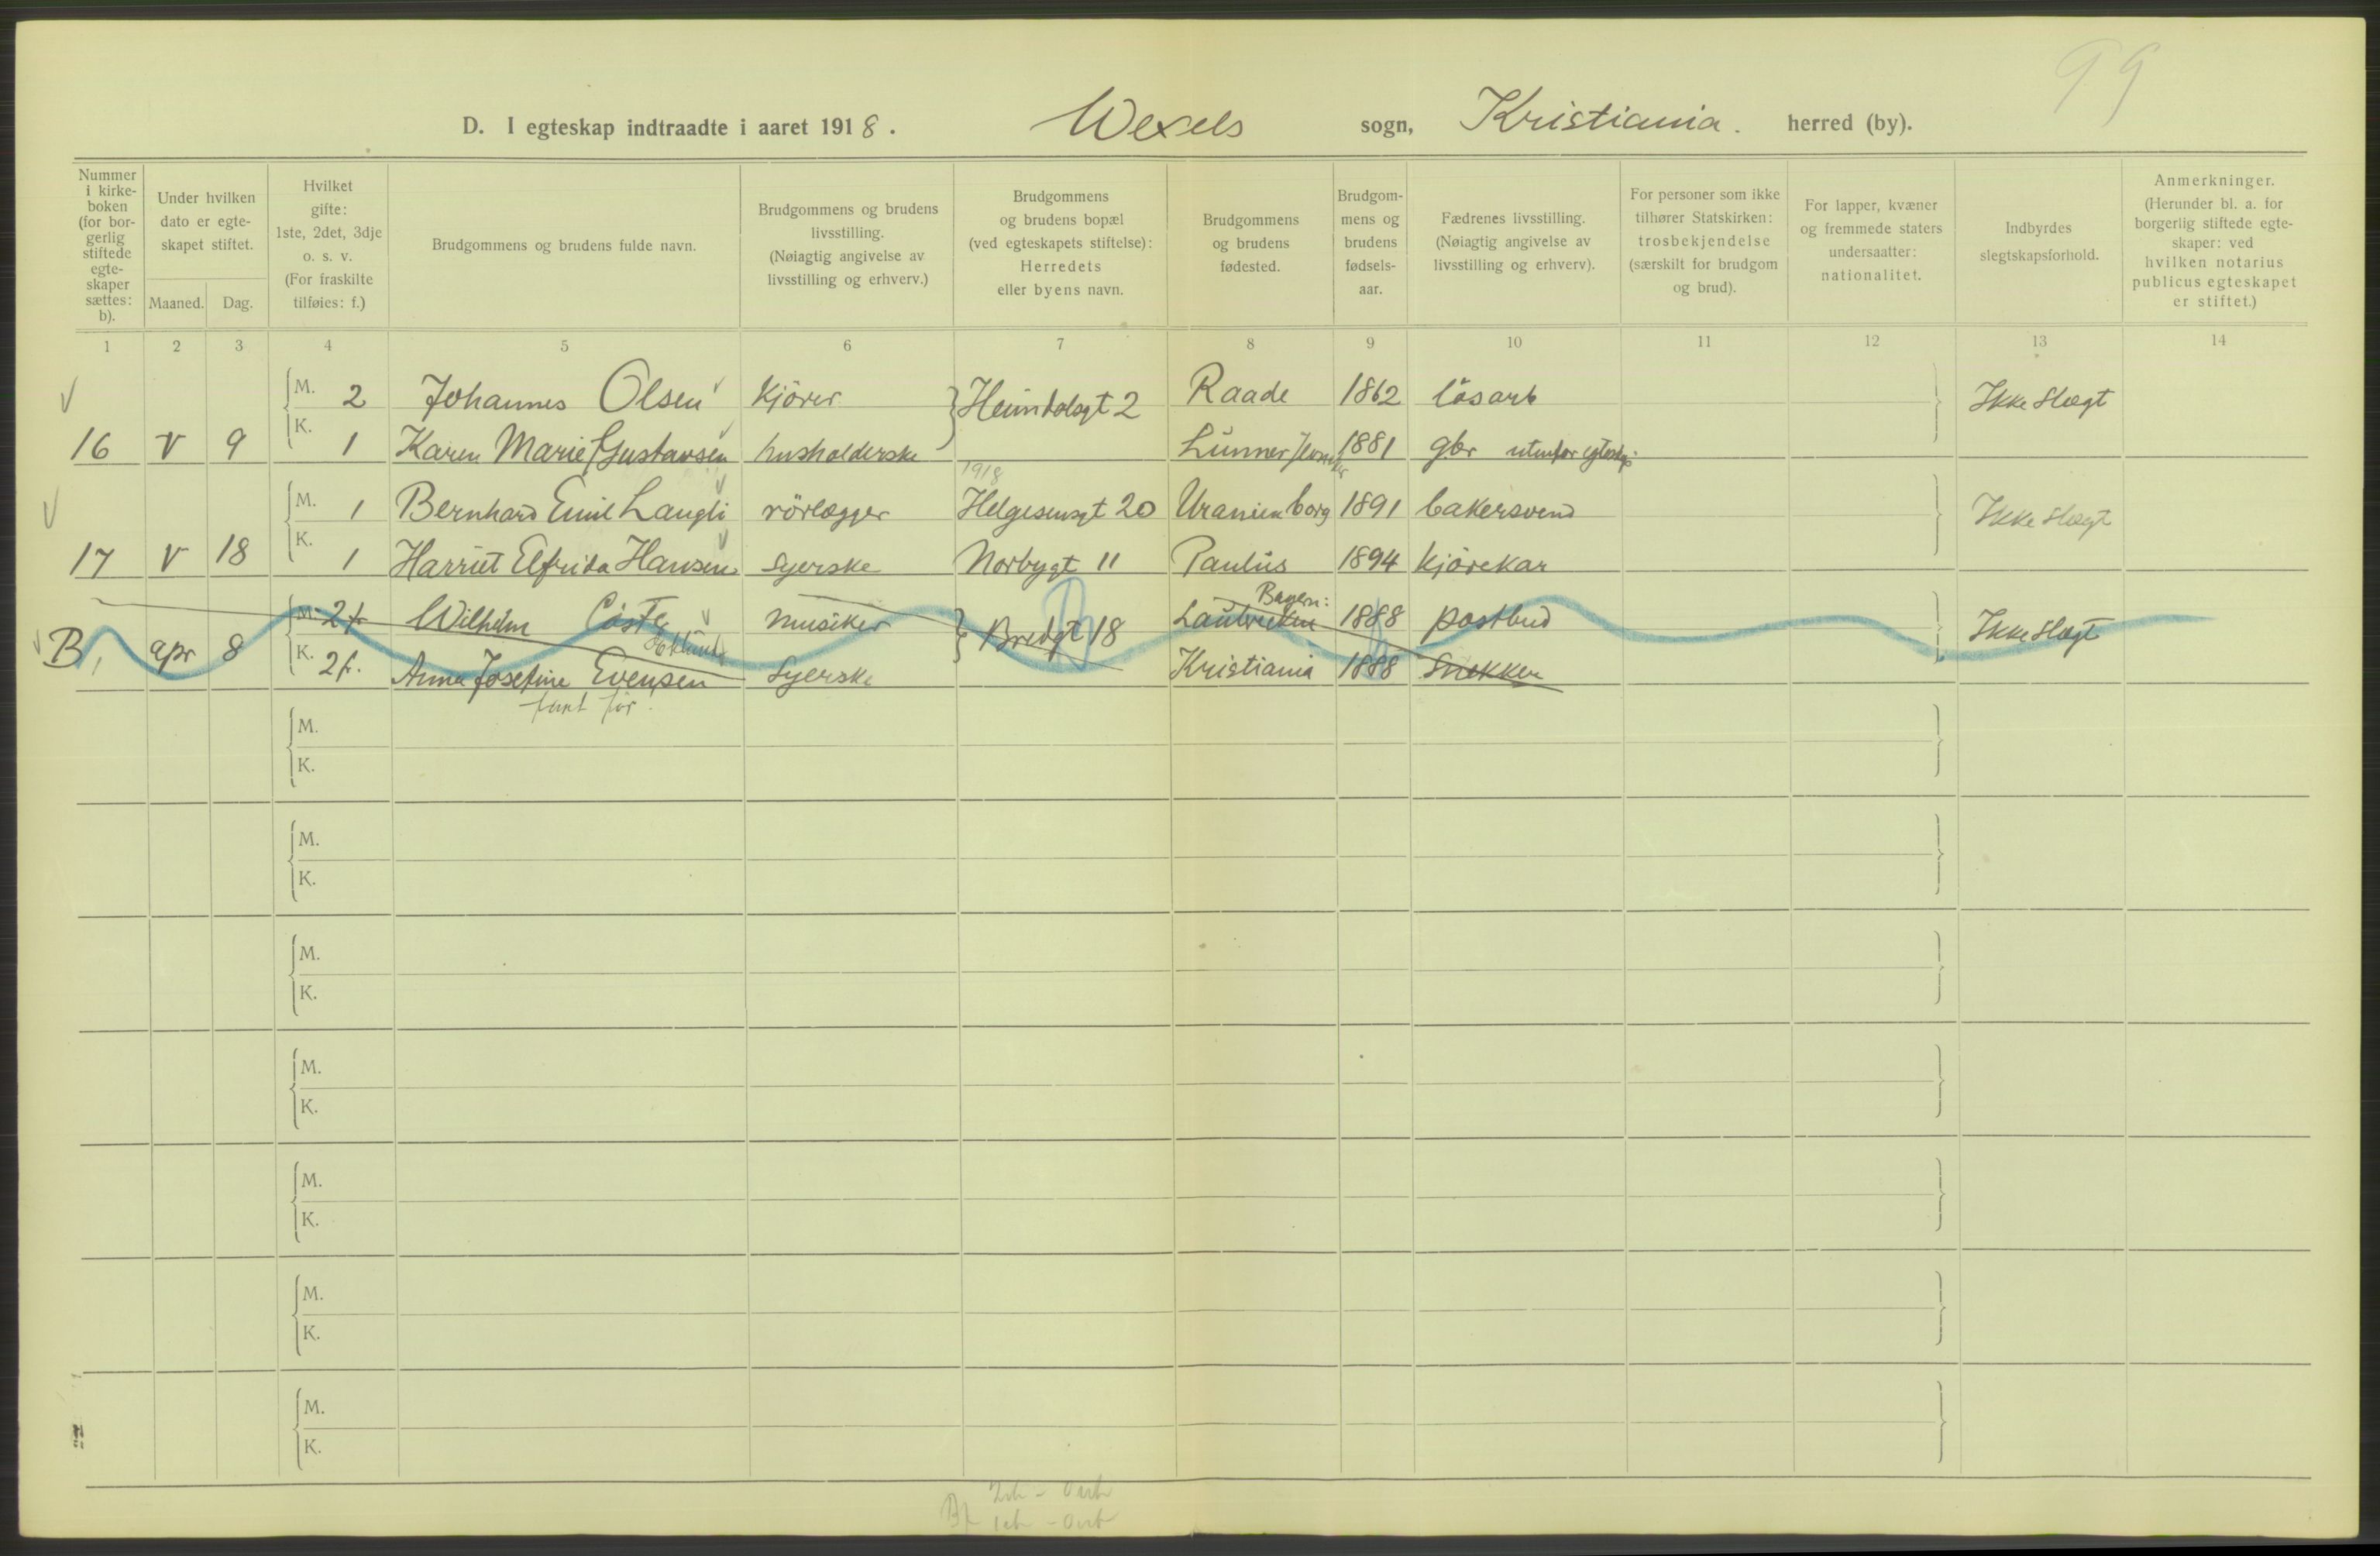 99
D. I egteskap indtraadte i aaret 1918. Wexels sogn, Kristiania. herred (by).
Nummer i kirke-boken (for bor-gerlig stiftede egte-skaper sættes: b).
Under hvilken dato er egte-skapet stiftet.
Maaned. Dag.
Hvilket gifte: 1ste, 2det, 3dje o. s. v. (For fraskilte tilføies: f.)
Brudgommens og brudens fulde navn.
Brudgommens og brudens livsstilling. (Nøiagtig angivelse av livsstilling og erhverv.)
Brudgommens og brudens bopæl (ved egteskapets stiftelse): Herredets eller byens navn.
Brudgommens og brudens fødested.
Brudgom-mens og brudens fødsels-aar.
Fædrenes livsstilling. (Nøiagtig angivelse av livsstilling og erhverv).
For personer som ikke tilhører Statskirken: trosbekjendelse (særskilt for brudgom og brud).
For lapper, kvæner og fremmede staters undersaatter: nationalitet.
Indbyrdes slegtskapsforhold.
Anmerkninger. (Herunder bl. a. for borgerlig stiftede egte-skaper: ved hvilken notarius publicus egteskapet er stiftet.)
1 2 3 4 5 6 7 8 9 10 11 12 13 14
M. 2 Johannes Olsen kjörer Heimdalsgt 2 Raade 1862 lösarb Ikke slægt
16 V 9 K. 1 Karen Marie Gustavsen husholderske Lunner 1881 gbr utenfor egteskap
1918
M. 1 Bernhard Emil Langli rörlægger Helgesensgt 20 Uranienborg 1891 bakersvend Ikke slægt
17 V 18 K. 1 Harriet Elfrida Hansen Syerske Norbygt 11 Paulus 1894 kjörekar
Bayern:
M. 2f. Wilhelm musiker Bredgt 18 1888 postbud Ikke slægt
B, apr 8 K. 2f. Anna Josefine Evensen Syerske Kristiania 1888 Snekker
M.
K.
M.
K.
M.
K.
M.
K.
M.
K.
M.
K.
M.
K.